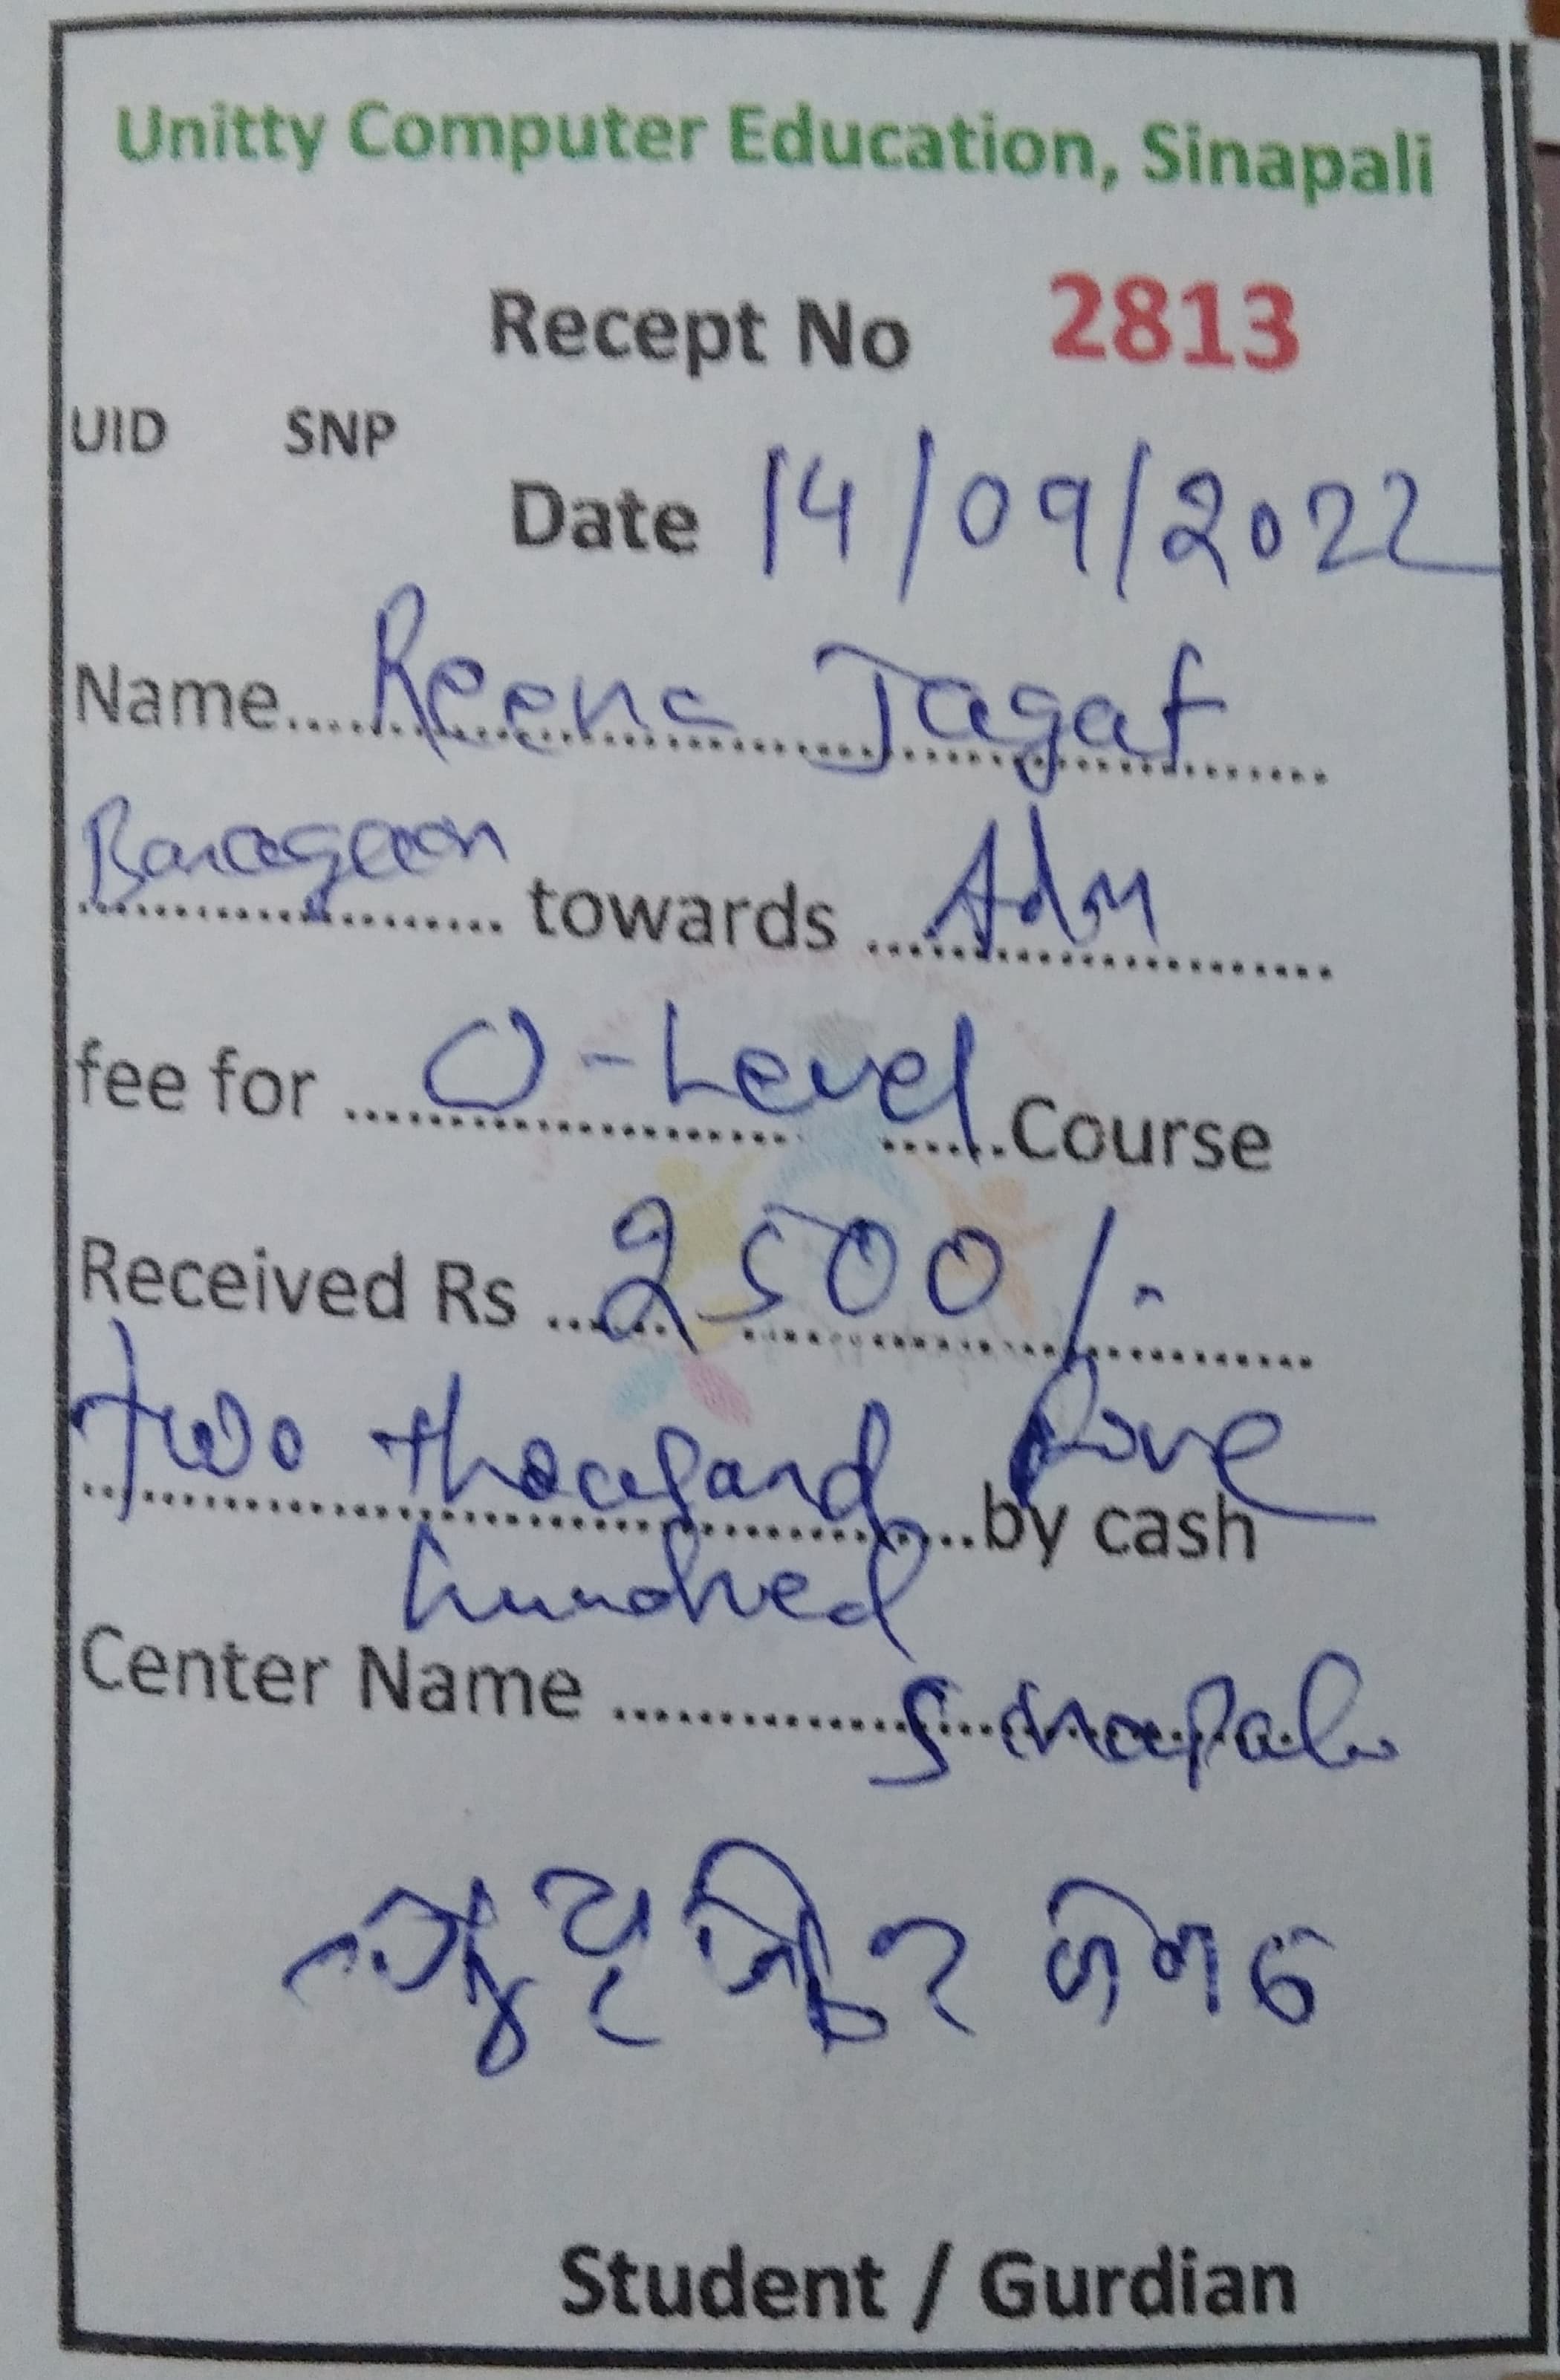 Unitty Computer Education, Sinapali
Recept No 2813
UID SNP
Date 14/09/2022
Name.... Reena Jagat
Baragaon towards Adm
fee for O-Level Course
Received Rs 2500/-
two thousand five by cash
hundred
Center Name Sinapali
ଜଗତ
Student / Gurdian